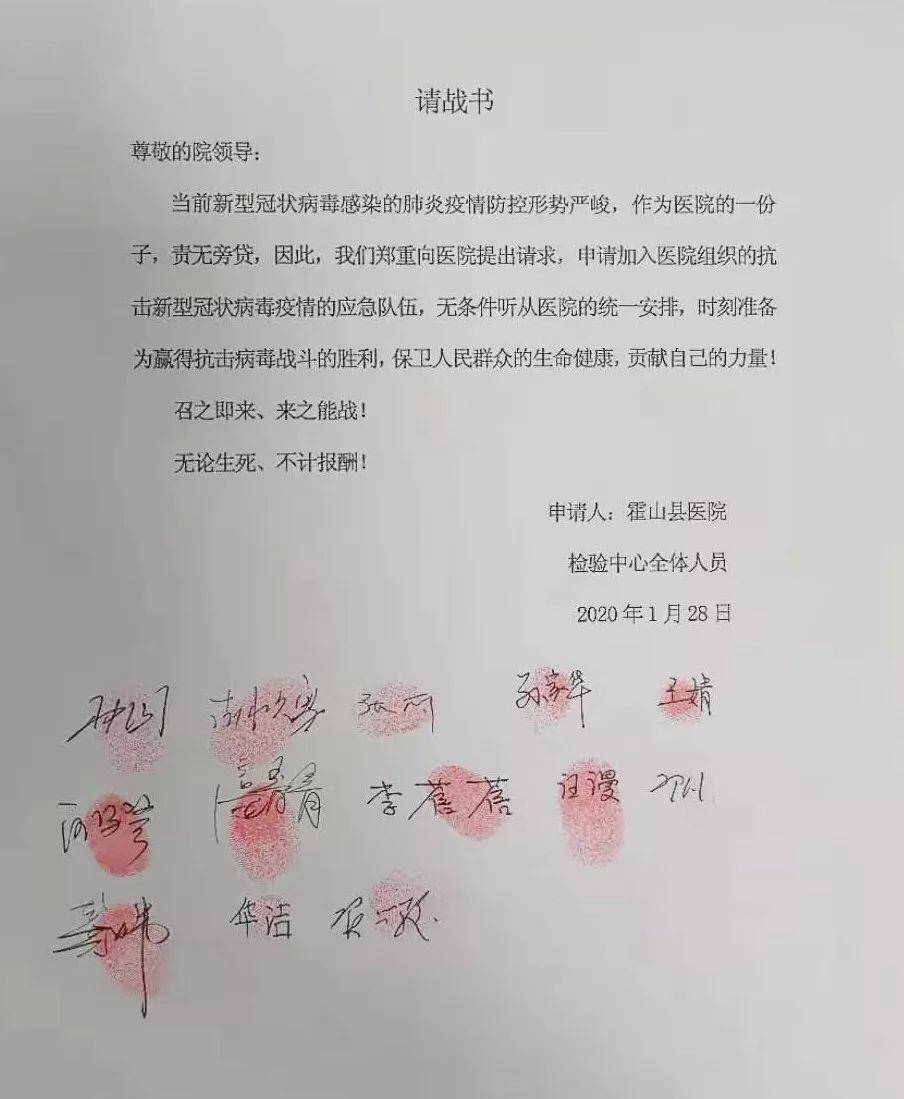 请战书
尊敬的院领导：
当前新型冠状病毒感染的肺炎疫情防控形势严峻，作为医院的一份
子，责无旁贷，因此，我们郑重向医院提出请求，申请加入医院组织的抗
击新型冠状病毒疫情的应急队伍，无条件听从医院的统一安排，时刻准备
为赢得抗击病毒战斗的胜利，保卫人民群众的生命健康，贡献自己的力量！
召之即来、来之能战！
无论生死、不计报酬！
申请人：霍山县医院
检验中心全体人员
2020年1月28日
孙家华 王婧
李蓓蓓 汪漫
华洁